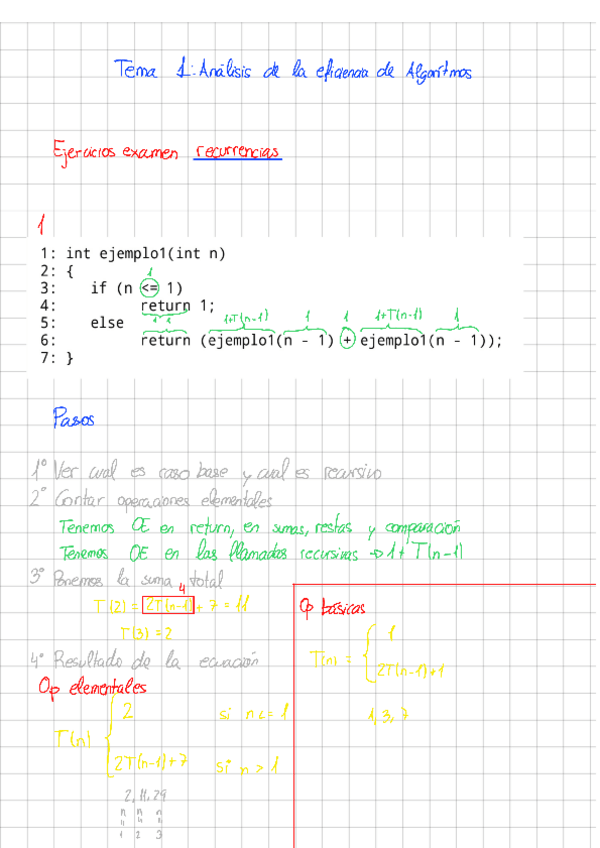 Tema 1: Análisis de la eficiencia de Algoritmos
Ejercicios examen recurrencias
1
1: int ejemplo1(int n)
1
2: {
3: if (n <= 1)
4: return 1;
1 1 1+T(n-1) 1 1 1+T(n-1) 1
5: else
6: return (ejemplo1(n - 1) + ejemplo1(n - 1));
7: }
Pasos
1º Ver cual es caso base y cual es recursivo
2º Contar operaciones elementales
Tenemos OE en return, en sumas, restas y comparación
Tenemos OE en las llamadas recursivas → 1+T(n-1)
3º Ponemos la suma total
4
T(2) = 2T(n-1) + 7 = 11
T(3) = 2
4º Resultado de la ecuación
Op elementales
T(n) { 2 si n <= 1
2T(n-1)+7 si n > 1
2, 11, 29
n n n
" " "
1 2 3
Op básicas
T(n) = { 1
2T(n-1)+1
1, 3, 7